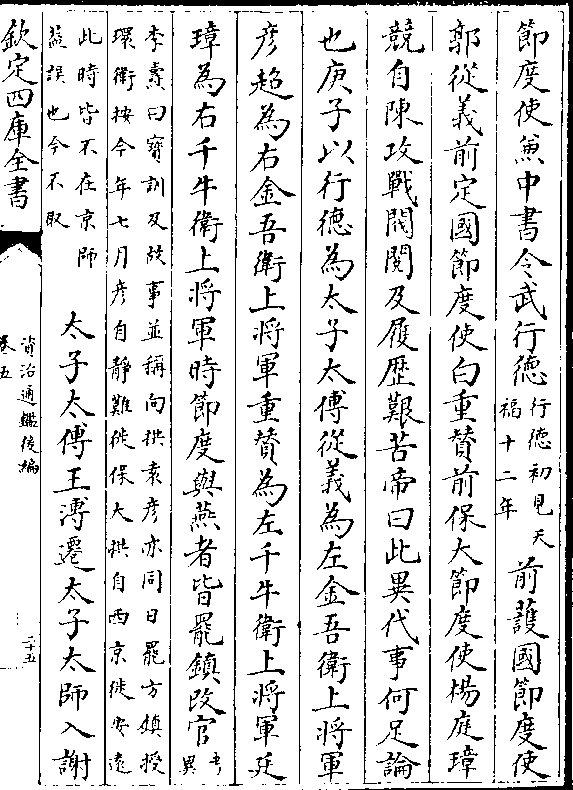 節度使兼中書令武行德行德初見天福十二年前護國節度使
郭從義前定國節度使白重贊前保大節度使楊庭璋
競自陳攻戰閥閱及履歷艱苦帝曰此異代事何足論
也庚子以行德為太子太傅從義為左金吾衛上將軍
彥超為右金吾衛上將軍重贊為左千牛衛上將軍廷
璋為右千牛衛上將軍時節度與燕者皆罷鎮改官考異
李燾曰寶訓及故事並稱向拱袁彥亦同日罷方鎮授
環衛按今年七月彥自靜難徙保大拱自西京徙安遠
此時皆不在京師
益誤也今不取
太子太傅王溥遷太子太師入謝
欽定四庫全書
資治通鑑後編
卷五
二十五